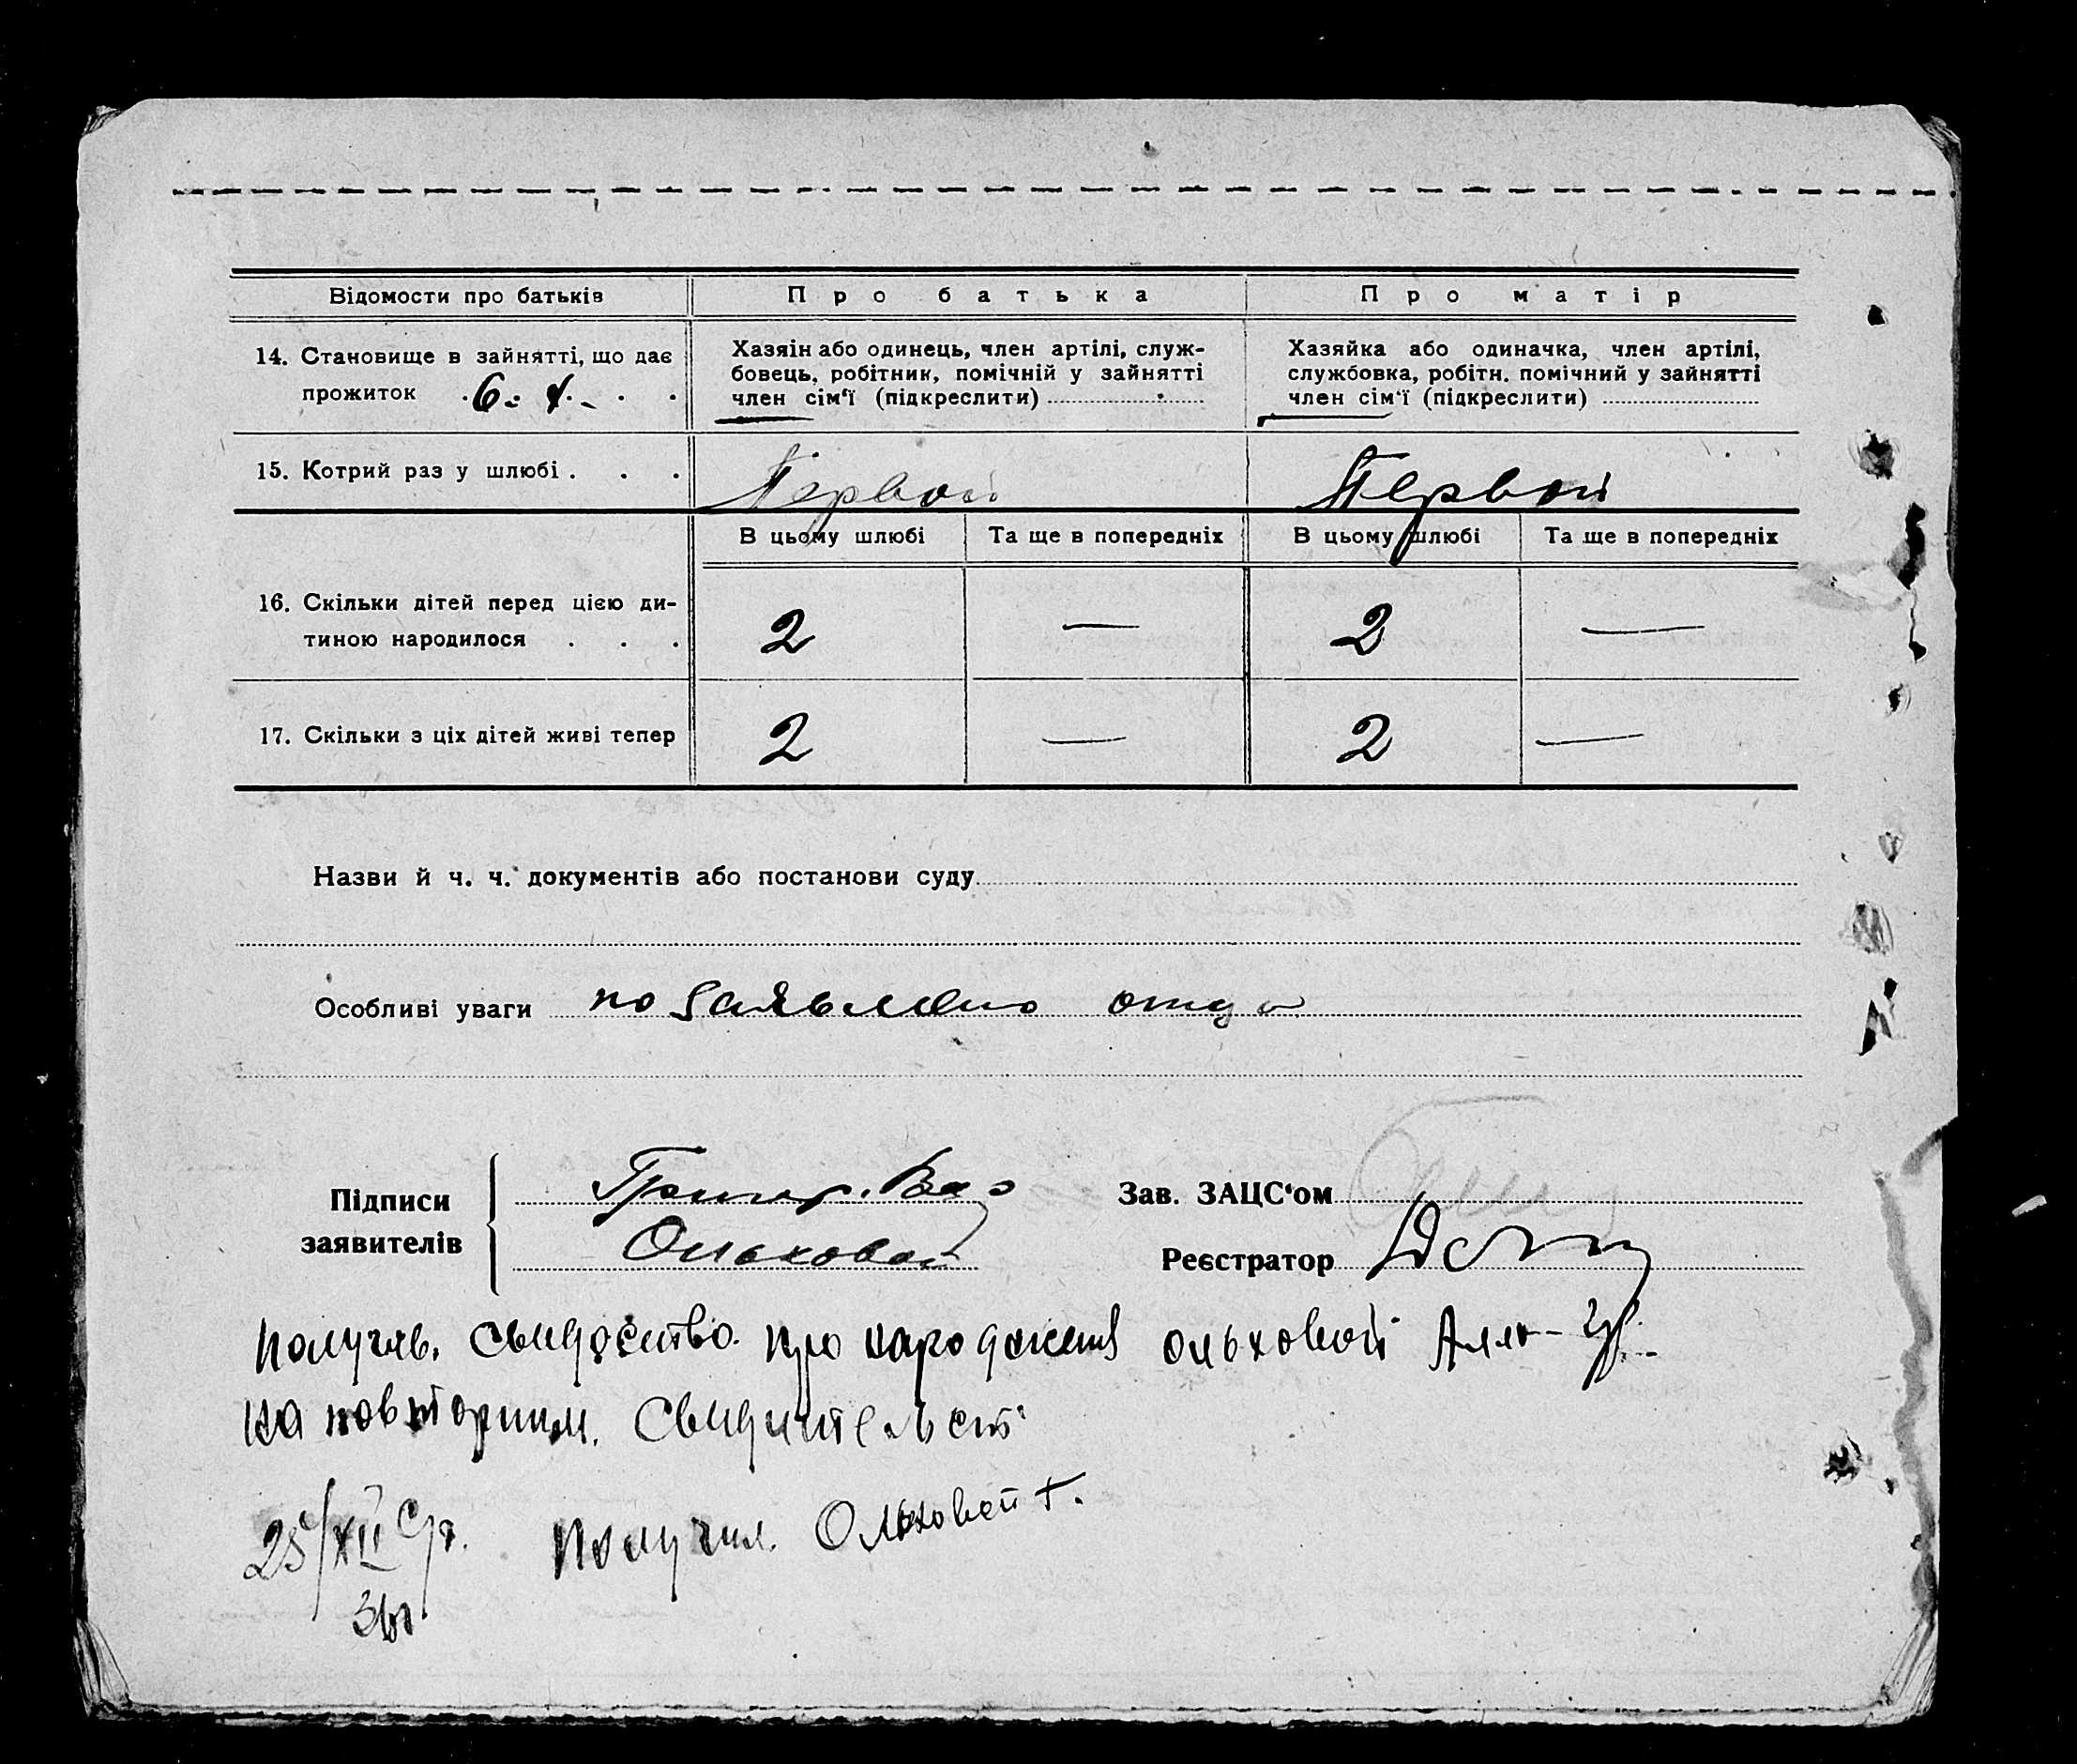 Відомости про батьків
Про батька
Про матір
14. Становище в зайнятті, що дає
прожиток
Хазяїн або одинець, член артілі, служ-
бовець, робітник, помічній у зайнятті
член сім'ї (підкреслити)
Хазяйка або одиначка, член артілі,
службовка, робітн. помічний у зайнятті
член сім'ї (підкреслити)
15. Котрий раз у шлюбі
Первой
Первой
В цьому шлюбі
Та ще в попередніх
В цьому шлюбі
Та ще в попередніх
16. Скільки дітей перед цією ди-
тиною народилося
2 —
2 —
17. Скільки з ціх дітей живі тепер
2 —
2 —
Назви й ч. ч. документів або постанови суду
Особливі уваги по заявлению отца
Підписи
заявителів
Ольховой
Зав. ЗАЦС'ом
Реєстратор
получив. свидоство. про народження ольховой
на повторним.
25/XII
получил. Ольховой Г.